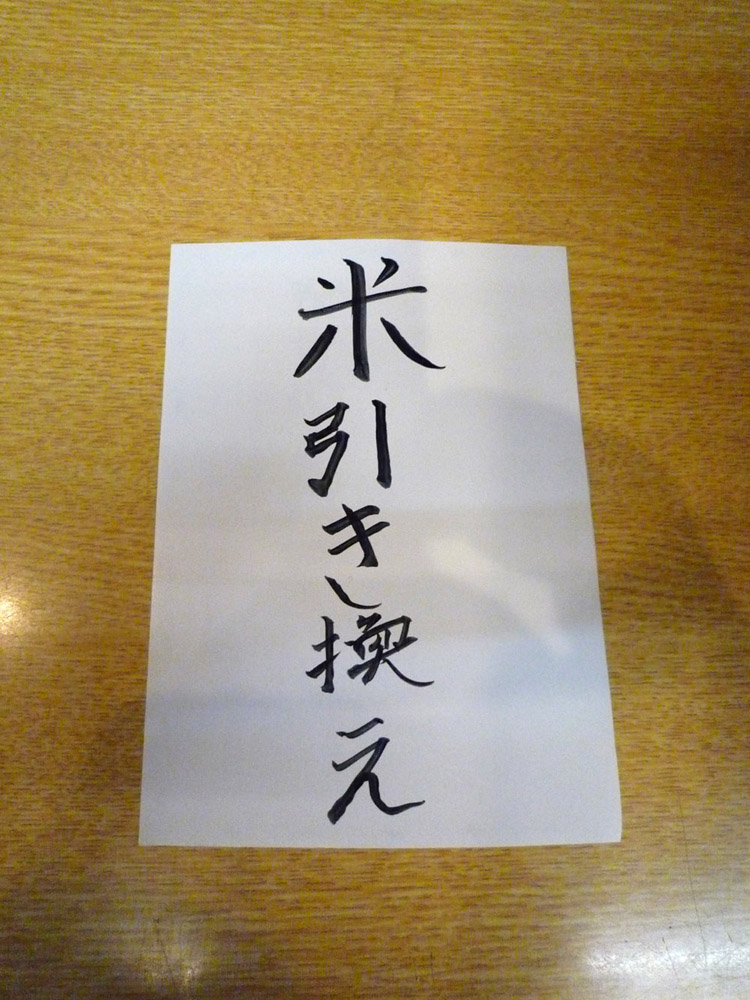 米引き換え